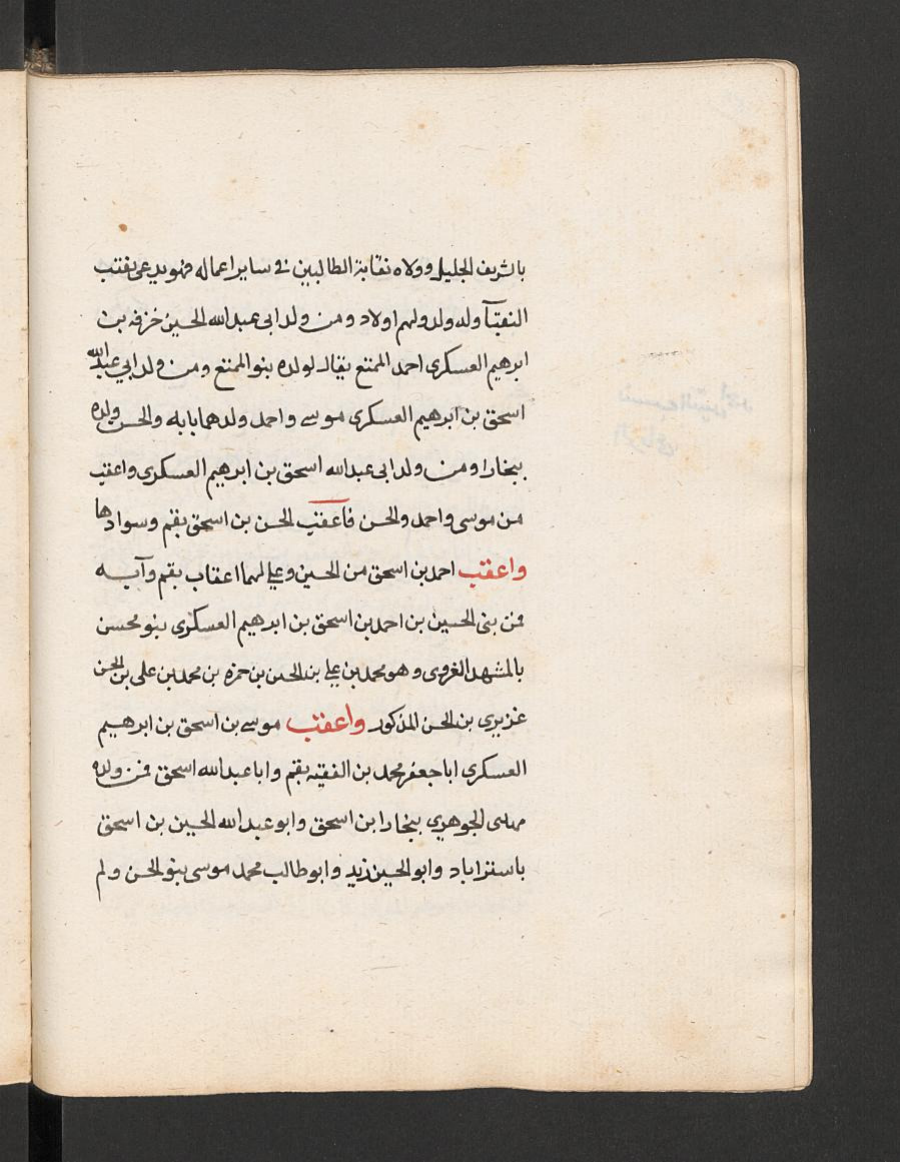 بالشريف الجليل وولاه نقابة الطالبين فى ساير اعماله فهو يدعى نقيب
النقبآ وله ولد ولهم اولاد ومن ولد ابى عبدالله الحسين خزفه بن
ابرهيم العسكرى احمد الممتع يقال لولده بنو الممتع ومن ولد ابي عبدالله
اسحق بن ابرهيم العسكرى موسى واحمد ولدهما بابه والحسن ولده
ببخارا ومن ولد ابى عبدالله اسحق بن ابرهيم العسكرى واعقب
من موسى واحمد والحسن فاعقب الحسن بن اسحق بقم وسوادها
واعقب احمد بن اسحق من الحسين وعلي لهما اعقاب بقم وآبه
فمن بنى الحسين بن احمد بن اسحق بن ابرهيم العسكرى بنو محسن
بالمشهد الغروى وهو محمد بن علي بن الحسن بن حمزه بن محمد بن على بن الحسن
عزيزى بن الحسن المذكور واعقب موسى بن اسحق بن ابرهيم
العسكرى اباجعفر محمد بن الفقيه بقم واباعبدالله اسحق فمن ولده
مهدى الجوهري ببخارا بن اسحق وابوعبدالله الحسين بن اسحق
باستراباد وابوالحسين زيد وابوطالب محمد موسى بنو الحسن ولم